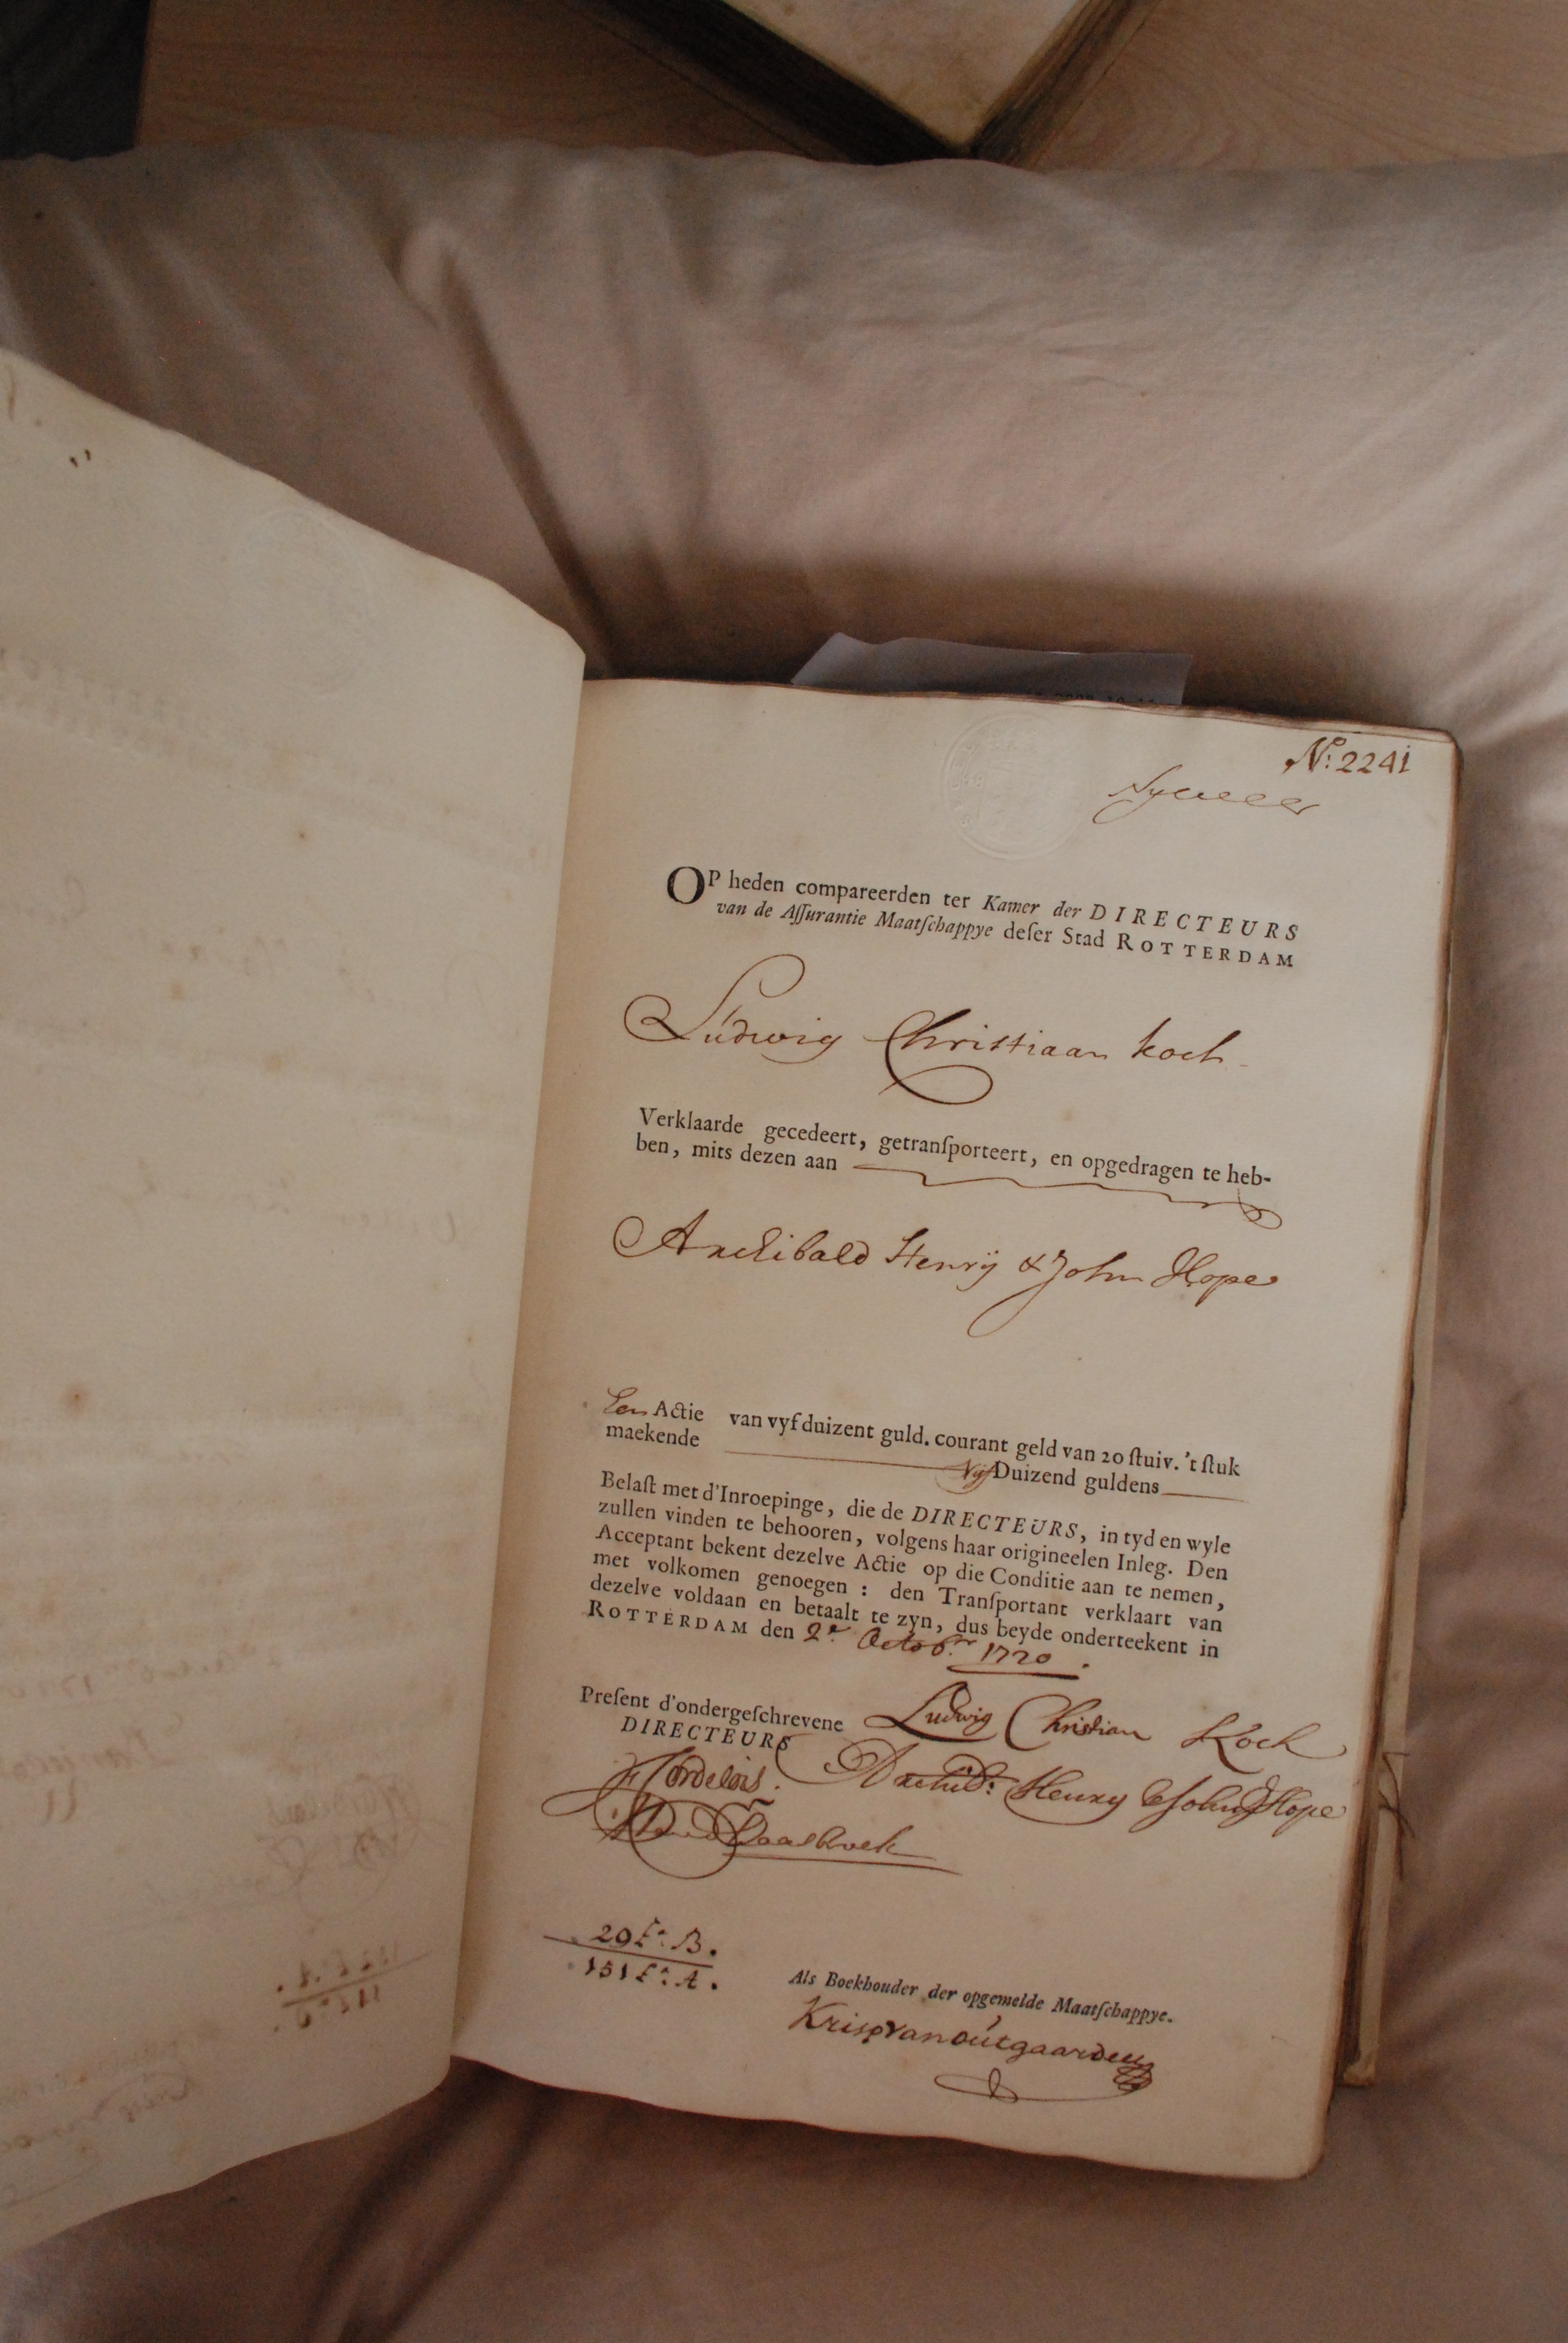 Nº: 2241
OP heden compareerden ter Kamer der DIRECTEURS
van de Aſſurantie Maatſchappye deſer Stad ROTTERDAM
Ludwig Christiaan koch
Verklaarde gecedeert, getranſporteert, en opgedragen te heb-
ben, mits dezen aan
Archibald Henrÿ & John Hope
Een Actie van vyf duizent guld. courant geld van 20 ſtuiv. 't ſtuk
maekende Vijf Duizend guldens
Belaſt met d'Inroepinge, die de DIRECTEURS, in tyd en wyle
zullen vinden te behooren, volgens haar origineelen Inleg. Den
Acceptant bekent dezelve Actie op die Conditie aan te nemen,
met volkomen genoegen : den Tranſportant verklaart van
dezelve voldaan en betaalt te zyn, dus beyde onderteekent in
ROTTERDAM den 2e. Octobr. 1720.
Preſent d'ondergeſchrevene Ludwig Christian Koch
DIRECTEURS
Archid: Henry & John Hope
29 fo: B.
151 fo: A.
Als Boekhouder der opgemelde Maatſchappye.
Krisp van outgaarden